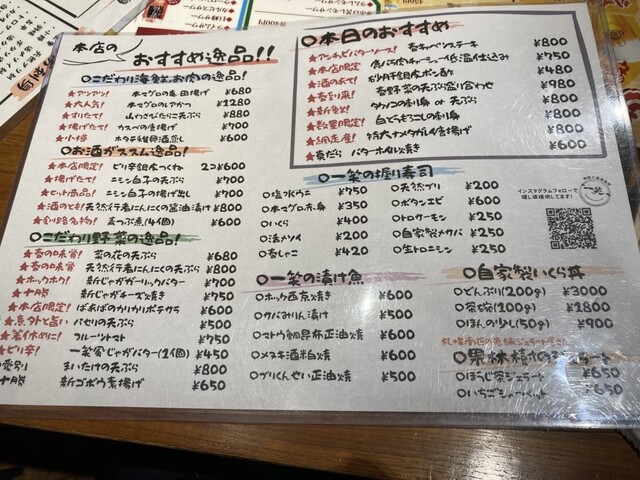 本店の おすすめ逸品!!
○こだわり海鮮、お肉の逸品!
★アンアン! 本マグロの竜田揚げ ¥680
★大人気! 本マグロのレアかつ ¥1280
★すりたて! 山わさびたらこ天ぷら ¥880
★揚げたて! カスベの唐揚げ ¥700
★小樽 ホタテ
¥600
○お酒がススム逸品!
★本店限定! ピリ辛銀杏つくね 2コ¥600
★揚げたて! ニシン白子の天ぷら ¥700
★ヒット商品! ニシン白子の唐揚げ出し ¥700
★酒のとも! 天然行者にんにくの醤油漬け ¥800
★釧路名物! 青つぶ煮(4個) ¥600
○こだわり野菜の逸品!
★春の味覚! 菜の花の天ぷら ¥680
★春の味覚! 天然行者にんにくの天ぷら ¥800
★ホックホク! 新じゃがガーリックバター ¥700
★十勝 新じゃがチーズ焼き ¥750
★本店限定! ばあばのカリカリポテサラ ¥600
★意外と旨い パセリの天ぷら ¥500
★箸休めに! フルーツトマト ¥500
★ピリ辛! 一笑風じゃがバター(1個) ¥450
まいたけの天ぷら ¥800
十勝 新ゴボウ素揚げ ¥650
○本日のおすすめ
★アンチョビバターソース! 春キャベツステーキ ¥800
★本店限定 低温仕込み ¥750
★酒のあて! 砂肝千銀皮ポン酢 ¥480
★春到来! 春野菜の天ぷら盛り合わせ ¥980
★新発売! タケノコのお刺身 or 天ぷら ¥800
★数量限定! 白とうもろこしのお刺身 ¥800
★網走産! 特大ナメタガレイ唐揚げ ¥800
★春だら バターホイル焼き ¥600
○一笑の握り寿司
○塩水ウニ ¥750
○本マグロ赤身 ¥350
○いくら ¥400
○活〆ソイ ¥200
○春しゃこ ¥420
○天然ブリ ¥200
○ボタンエビ ¥600
○トロサーモン ¥250
○自家製〆サバ ¥250
○生トロニシン ¥250
インスタグラムフォローで
推し様提供してます!
一笑
○一笑の漬け魚
○ホッケ西京焼き ¥600
○サバみりん漬け ¥500
○マトウ鯛昆布正油焼 ¥600
○メヌキ酒粕焼 ¥600
○ブリくんせい正油焼 ¥500
○自家製いくら丼
○どんぶり(200g) ¥3000
○茶碗(100g) ¥1800
○ほんの少し(50g) ¥900
札幌南区の老舗ジェラート屋さん
○果林樹のジェラート
○ほうじ茶ジェラート ¥650
○いちごシャーベット ¥650